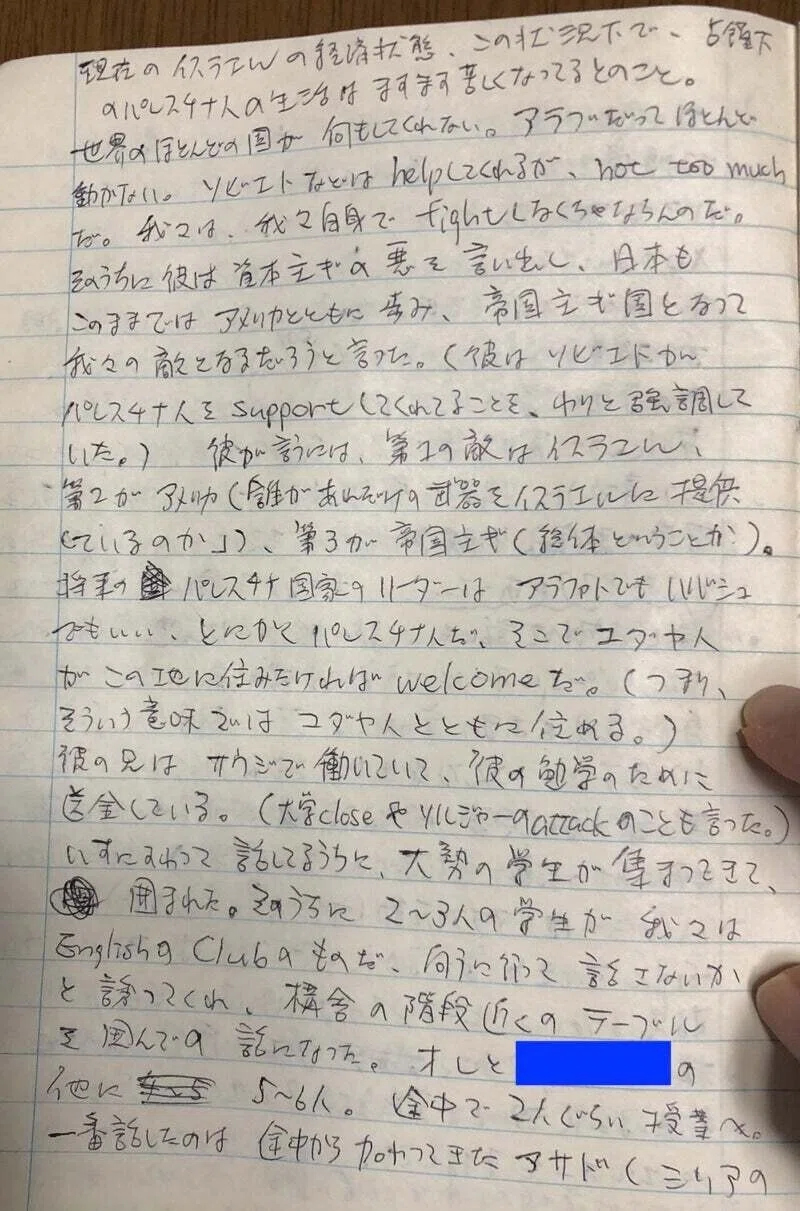 現在のイスラエルの経済状態、この状況下で、占領下
のパレスチナ人の生活はますます苦しくなってるとのこと。
世界のほとんどの国が何もしてくれない。アラブだってほとんど
動かない。ソビエトなどはhelpしてくれるが、not too much
だ。我々は、我々自身でfightしなくちゃならんのだ。
そのうちに彼は資本主ぎの悪を言い出し、日本も
このままではアメリカとともに歩み、帝国主ぎ国となって
我々の敵となるだろうと言った。(彼はソビエトが
パレスチナ人をsupportしてくれてることを、わりと強調して
いた。) 彼が言うには、第1の敵はイスラエル、
第2がアメリカ(「誰があれだけの武器をイスラエルに提供
しているのか」)、第3が帝国主ぎ(総体ということか)。
将来のパレスチナ国家のリーダーはアラファトでもハバシュ
でもいい、とにかくパレスチナ人だ、そこでユダヤ人
がこの地に住みたければwelcomeだ。(つまり、
そういう意味ではユダヤ人とともに住める。)
彼の兄はサウジで働いていて、彼の勉学のために
送金している。(大学closeやソルジャーのattackのことも言った。)
いすにすわって話してるうちに、大勢の学生が集まってきて、
囲まれた。そのうちに2~3人の学生が我々は
EnglishのClubのものだ、向うに行って話さないか
と誘ってくれ、構舎の階段近くのテーブル
を囲んでの話になった。オレと の
他に 5~6人。途中で2人ぐらい授業へ。
一番話したのは途中から加わってきたアサド(シリアの